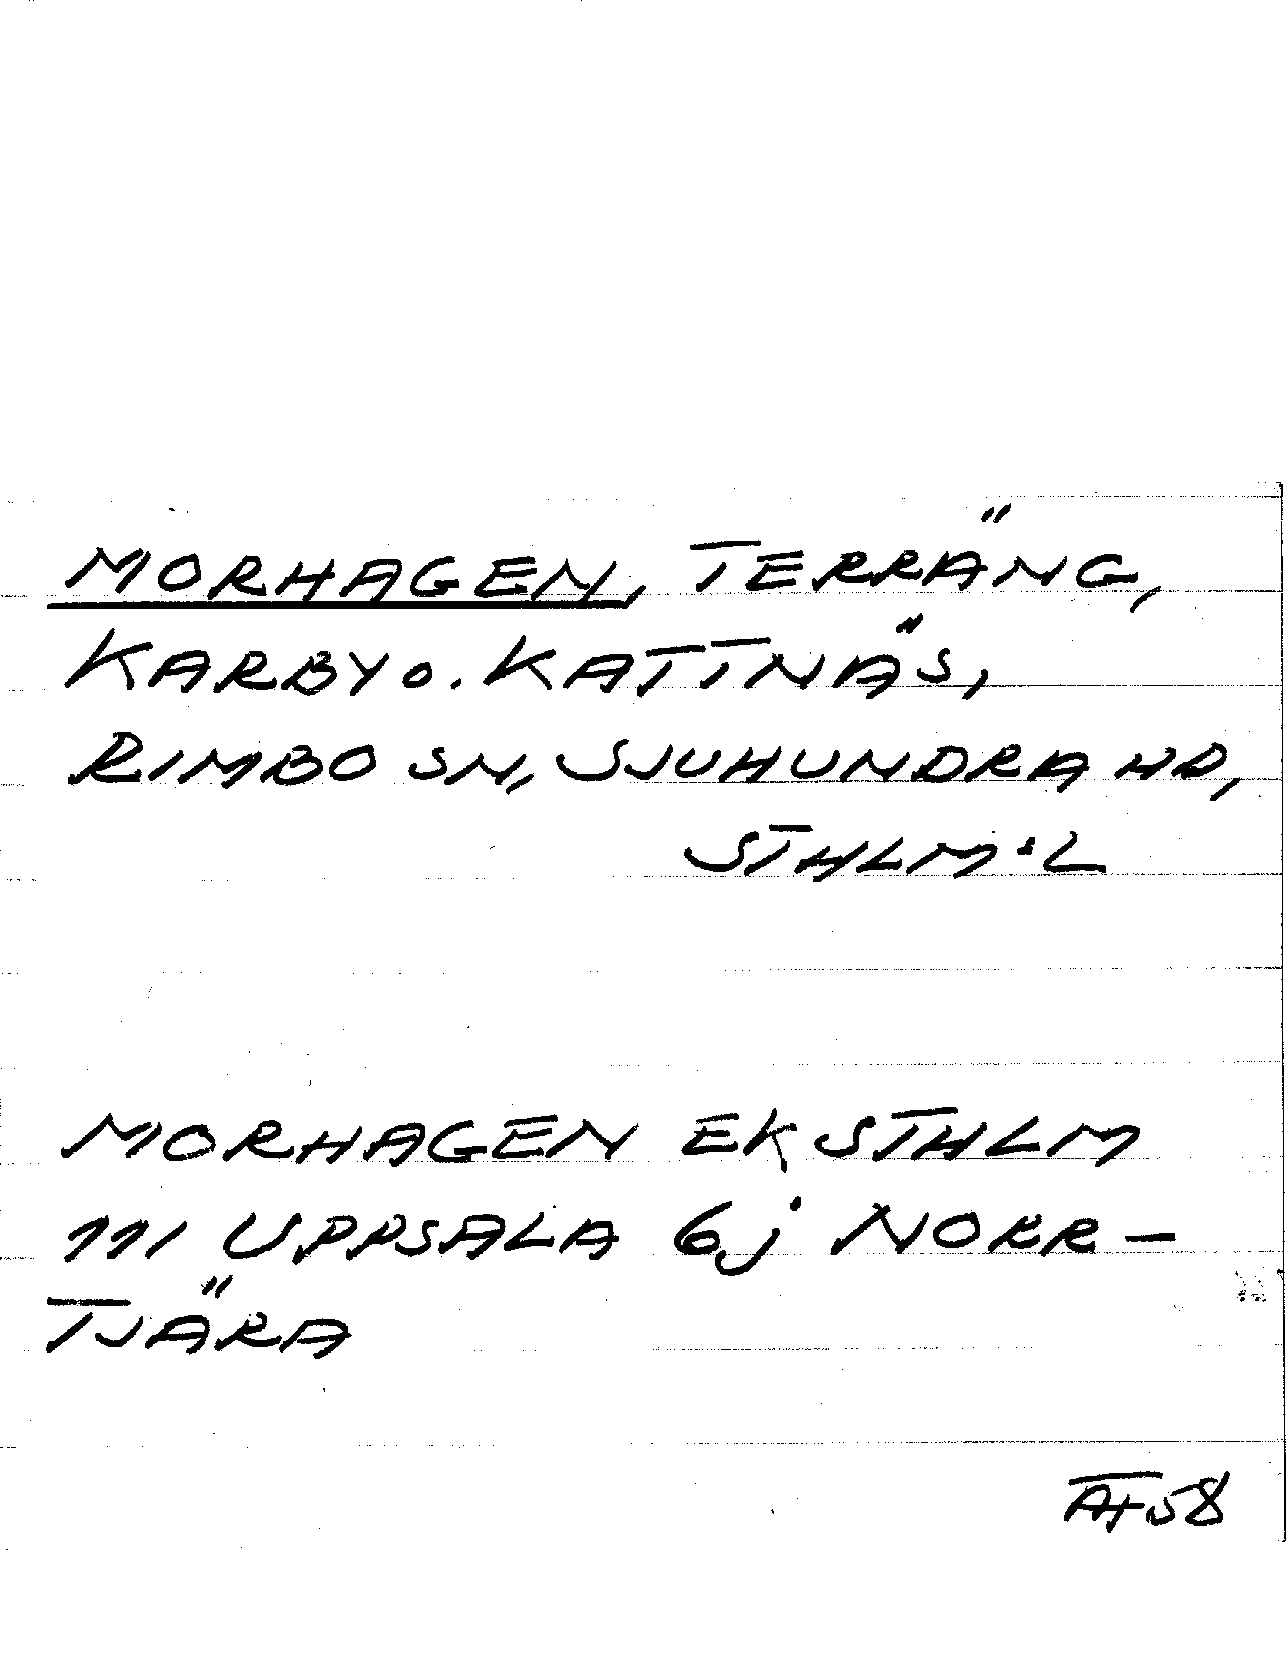 MORHAGEN, TERRÄNG,
KARBY o. KATTNÄS,
RIMBO SN, SJUHUNDRA HD,
STHLM:L
MORHAGEN EK STHLM
111 UPPSALA 6j NORR-
TJÄRA